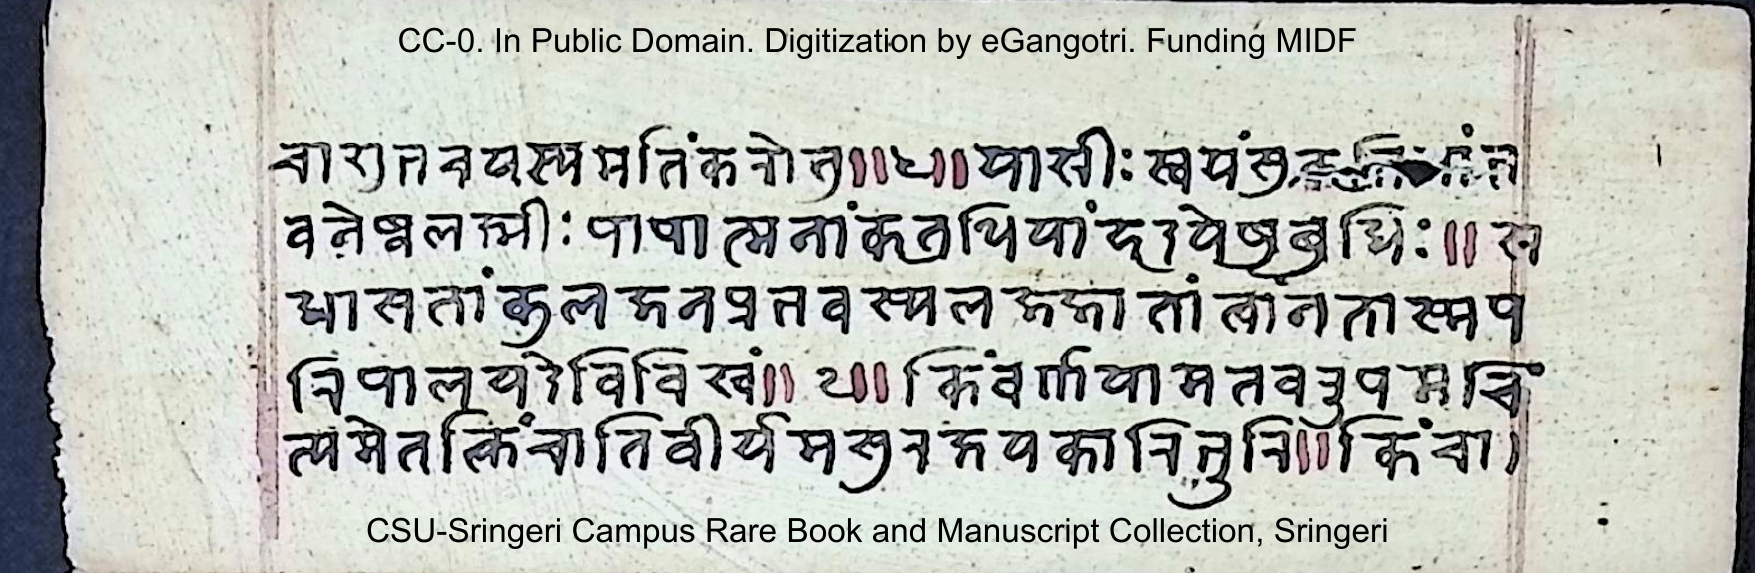 CC-0. In Public Domain. Digitization by eGangotri. Funding MIDF
चाशुभवयस्पमतिंकरोतु॥४॥याश्रीःस्वयंसु
वनेष्वलक्ष्मीःपापात्मनांकृतधियांहृदयेषुबुद्धिः॥स
धासतांकुलजनप्रभवस्पलज्जातांत्वांनतास्मप
रिपालयदेविविश्वं॥५॥किंवर्णयामतवरुपमचिं
त्पमेतत्किंचातिवीर्यमसुरक्षयकारिभुरि॥किंचा
CSU-Sringeri Campus Rare Book and Manuscript Collection, Sringeri